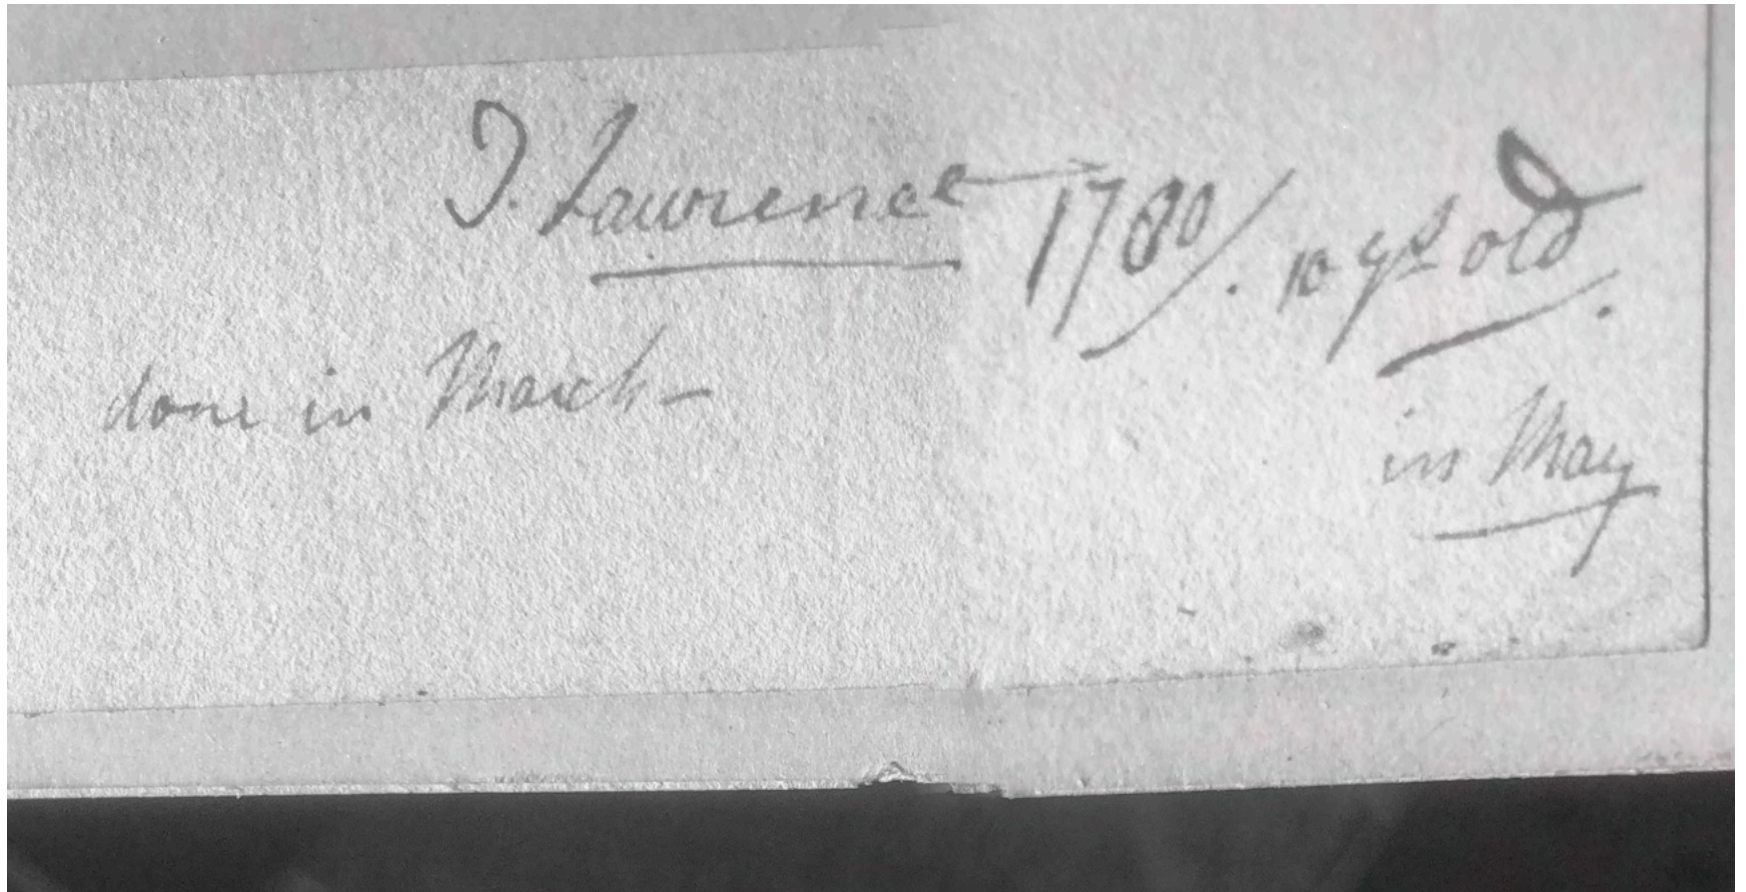 T. Lawrence 1780/. 10 yrs old.
done in March – in May